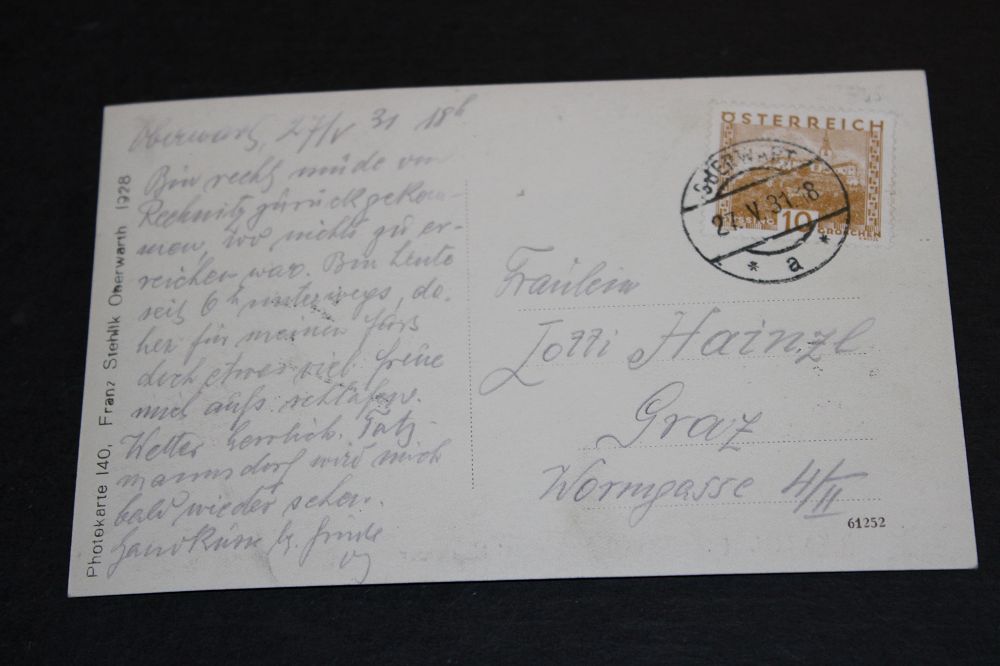 Oberwart, 27/V 31 18h
Bin recht müde von
Rechnitz zurückgekom-
men, wo nichts zu er-
reichen war. Bin heute
seit 6h unterwegs, da-
her für meinen
doch etwas viel freue
mich aufs schlafen.
Wetter herrlich. Tatz-
mannsdorf wird mich
bald wieder sehen.
Handküsse
Photokarte 140, Franz Stehlik Oberwarth 1928
ÖSTERREICH
GÜSSING 10 GROSCHEN
OBERWART
27.V.31-8
* a *
Fräulein
Hainzl
Graz
Wormgasse 4/II
61252